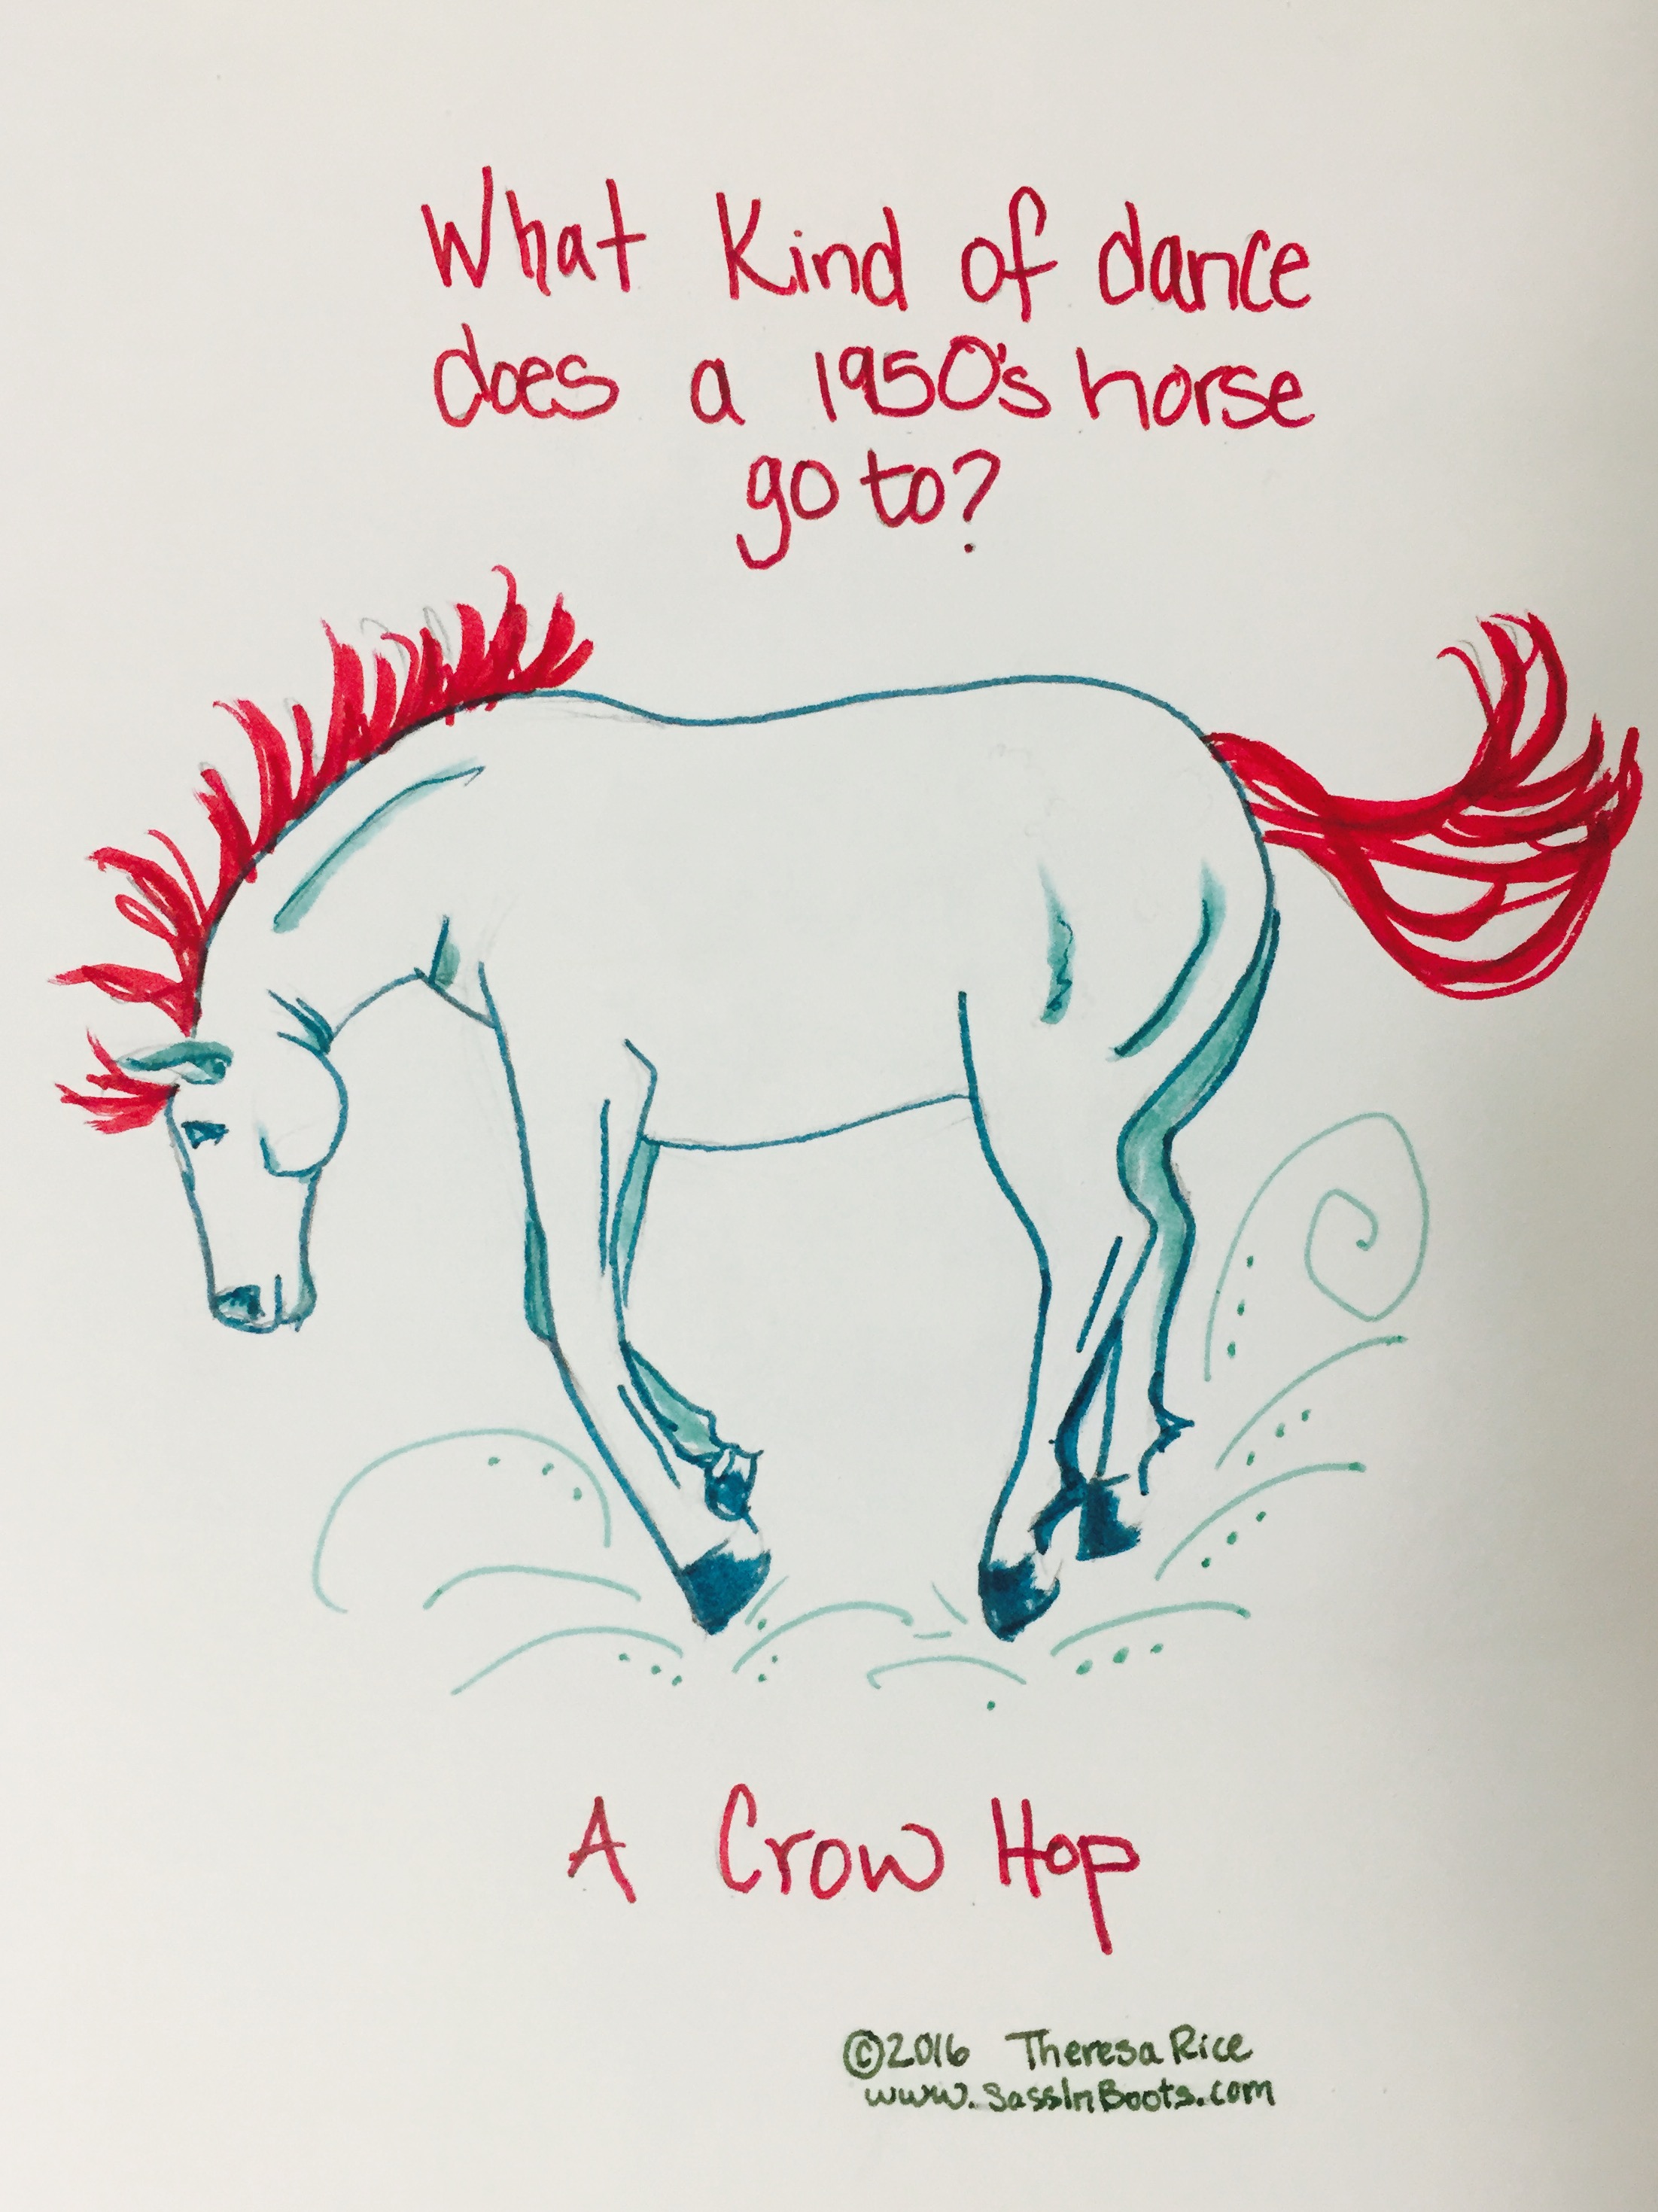 What Kind of dance
does a 1950's horse
go to?
A Crow Hop
©2016 Theresa Rice
www.SassInBoots.com